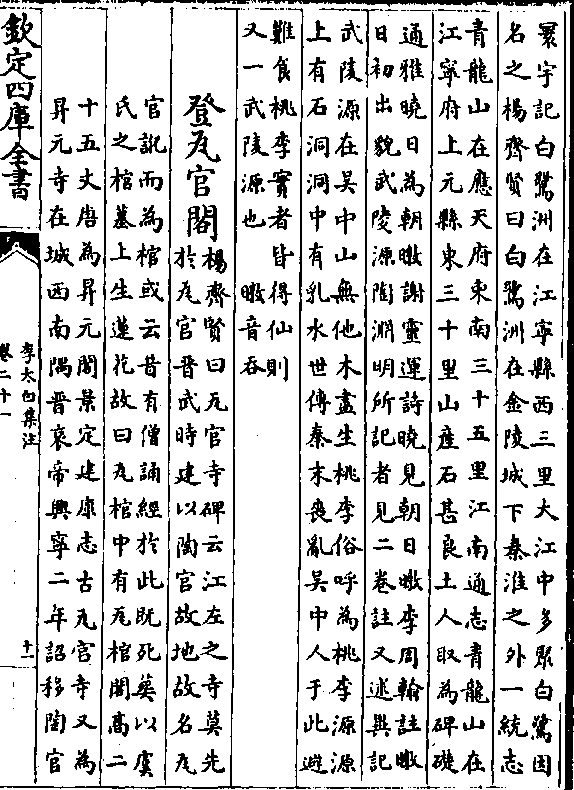 寰宇記白鷺洲在江寧縣西三里大江中多聚白鷺因
名之楊齊賢曰白鷺洲在金陵城下秦淮之外一統志
青龍山在應天府東南三十五里江南通志青龍山在
江寧府上元縣東三十里山産石甚良土人取為碑礎
通雅曉日為朝暾謝靈運詩曉見朝日暾李周翰註暾
日初出貌武陵源陶淵明所記者見二卷註又述異記
武陵源在吴中山無他木盡生桃李俗呼為桃李源源
上有石洞洞中有乳水世傳秦末喪亂吴中人于此避
難食桃李實者皆得仙則
又一武陵源也 暾音吞
登瓦官閣
楊齊賢曰瓦官寺碑云江左之寺莫先
於瓦官晉武時建以陶官故地故名瓦
官訛而為棺或云昔有僧誦經於此既死葬以虞
氏之棺墓上生蓮花故曰瓦棺中有瓦棺閣高二
十五丈唐為昇元閣景定建康志古瓦官寺又為
昇元寺在城西南隅晉哀帝興寧二年詔移陶官
欽定四庫全書
李太白集注
卷二十一
十一